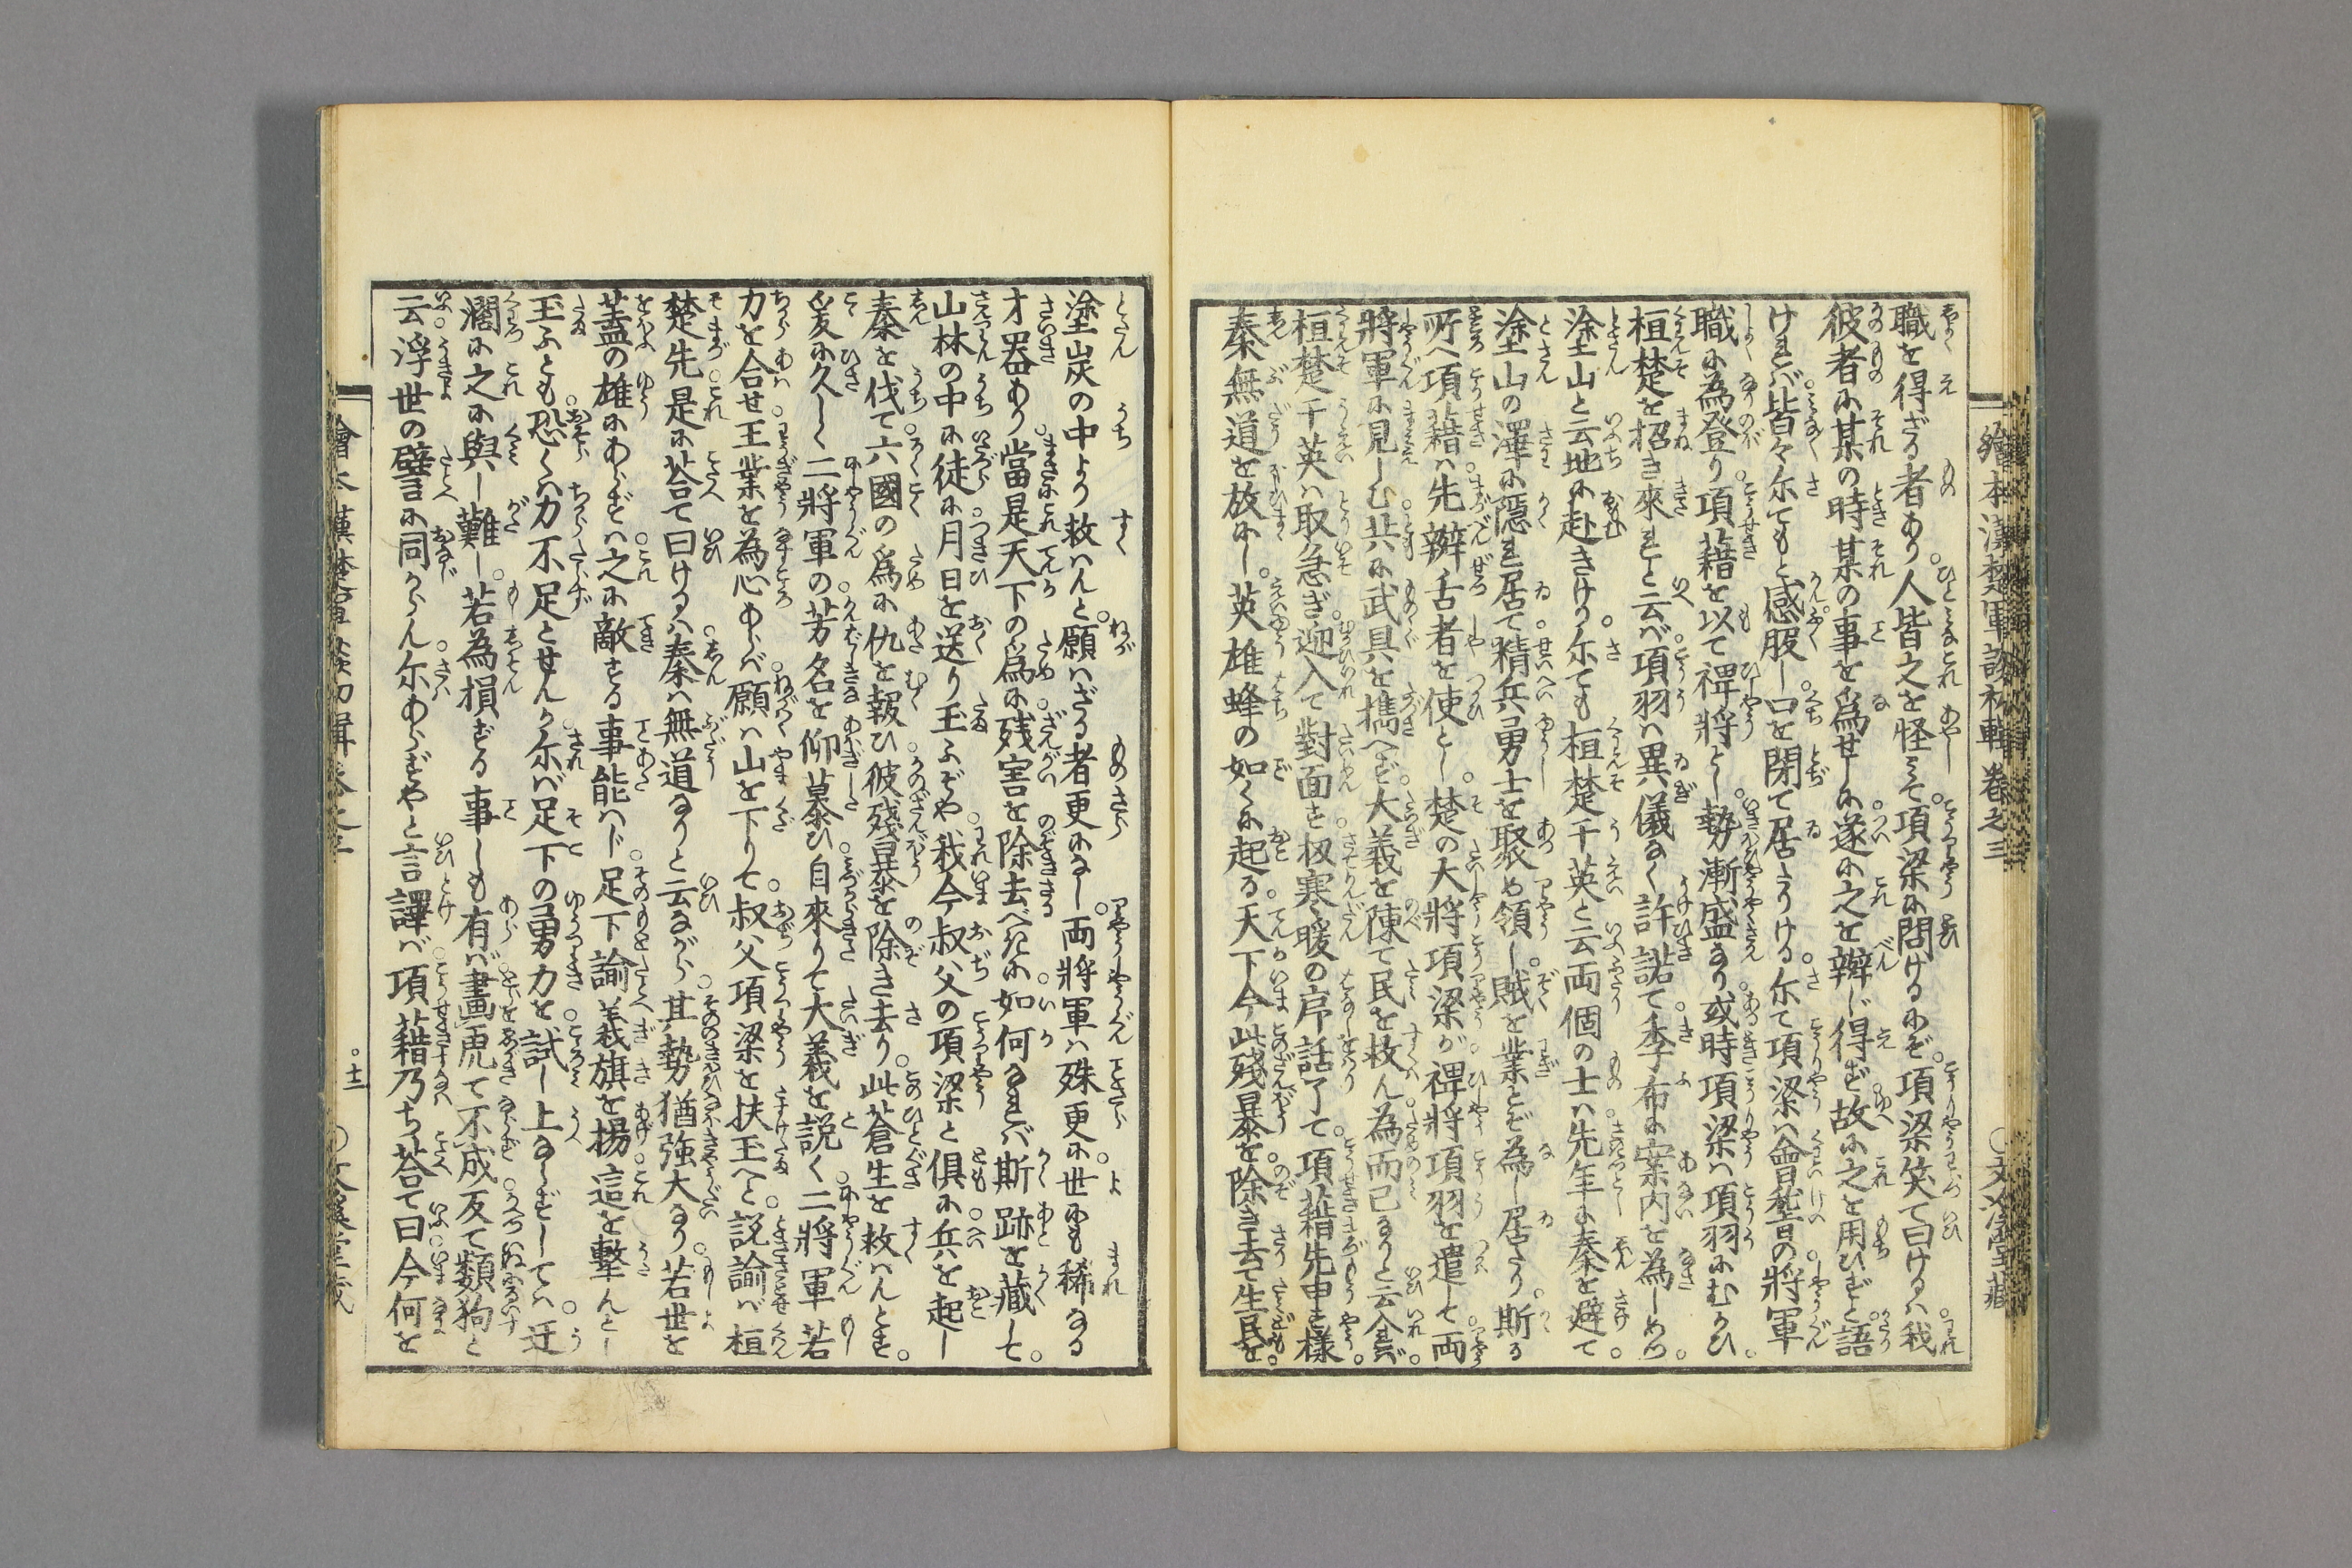 繪本漢楚軍談初輯 卷之三 〇文溪堂藏
職を得ざる者あり。人皆之を怪みて。項梁に問けるにぞ。項梁笑て曰けるハ。我
彼者に某の時某の事を爲せしに。遂に之を辨じ得ず。故に之を用ひずと。語
けれバ。皆々尓てもと感服し。口を閉て居たりける。尓て項梁ハ會稽の將軍
職に為登り。項藉を以て禆將とし。勢漸盛なり。或時項梁ハ項羽にむかひ。
桓楚を招き來れと云バ。項羽ハ異儀なく許諾て。季布に案内を為しめつ。
塗山と云地に赴きける。尓ても桓楚于英と云両個の士ハ。先年に秦を避て。
塗山の澤に隱れ居て。精兵勇士を聚め領し。賊を業とぞ為し居たり。斯る
所へ項藉ハ。先辨舌者を使とし。楚の大將項梁が。禆將項羽を遣して。両
將軍に見しむ。共に武具を擕へず。大義を陳て民を救ん為而已なりと云入れバ。
桓楚于英ハ取急ぎ。迎入て對面を。扨寒暖の序話了て。項藉先申を樣。
秦無道を放にし。英雄蜂の如くに起る。天下今此殘暴を。除き去て生民を。
塗炭の中より救ハんと。願ハざる者更になし。両將軍ハ殊更に。世にも稀なる
才器あり。當是天下の爲に。残害を除去べきに。如何なれバ斯跡を藏して。
山林の中に。徒に月日を送り玉ふぞや。我今叔父の項梁と俱に。兵を起し
秦を伐て。六國の爲に仇を報ひ。彼殘暴を除き去り。此蒼生を救ハんとす。
爰に久しく二將軍の。芳名を仰慕ひ。自來りて大義を説く。二將軍若
力を合せ。王業を為心あらバ。願ハ山を下りて。叔父項梁を扶玉へと。説諭バ桓
楚先是に荅て曰けるハ。秦ハ無道なりと云ながら。其勢猶強大なり。若世を
葢の雄にあらずハ。之に敵する事能ハじ。足下諭義旗を揚。這を擊んとし
玉ふとも。恐くハ力不足とせんか。尓バ足下の勇力を。試し上ならずしてハ。迂
濶に之に與し難し。若為損ずる事しも有バ。畫虎て不成。反て類狗と
云。浮世の譬に同からん。尓あらずやと言譯バ。項藉乃ち荅て曰。今何を
繪本漢楚軍談初輯卷之三 〇十二 〇文溪堂藏